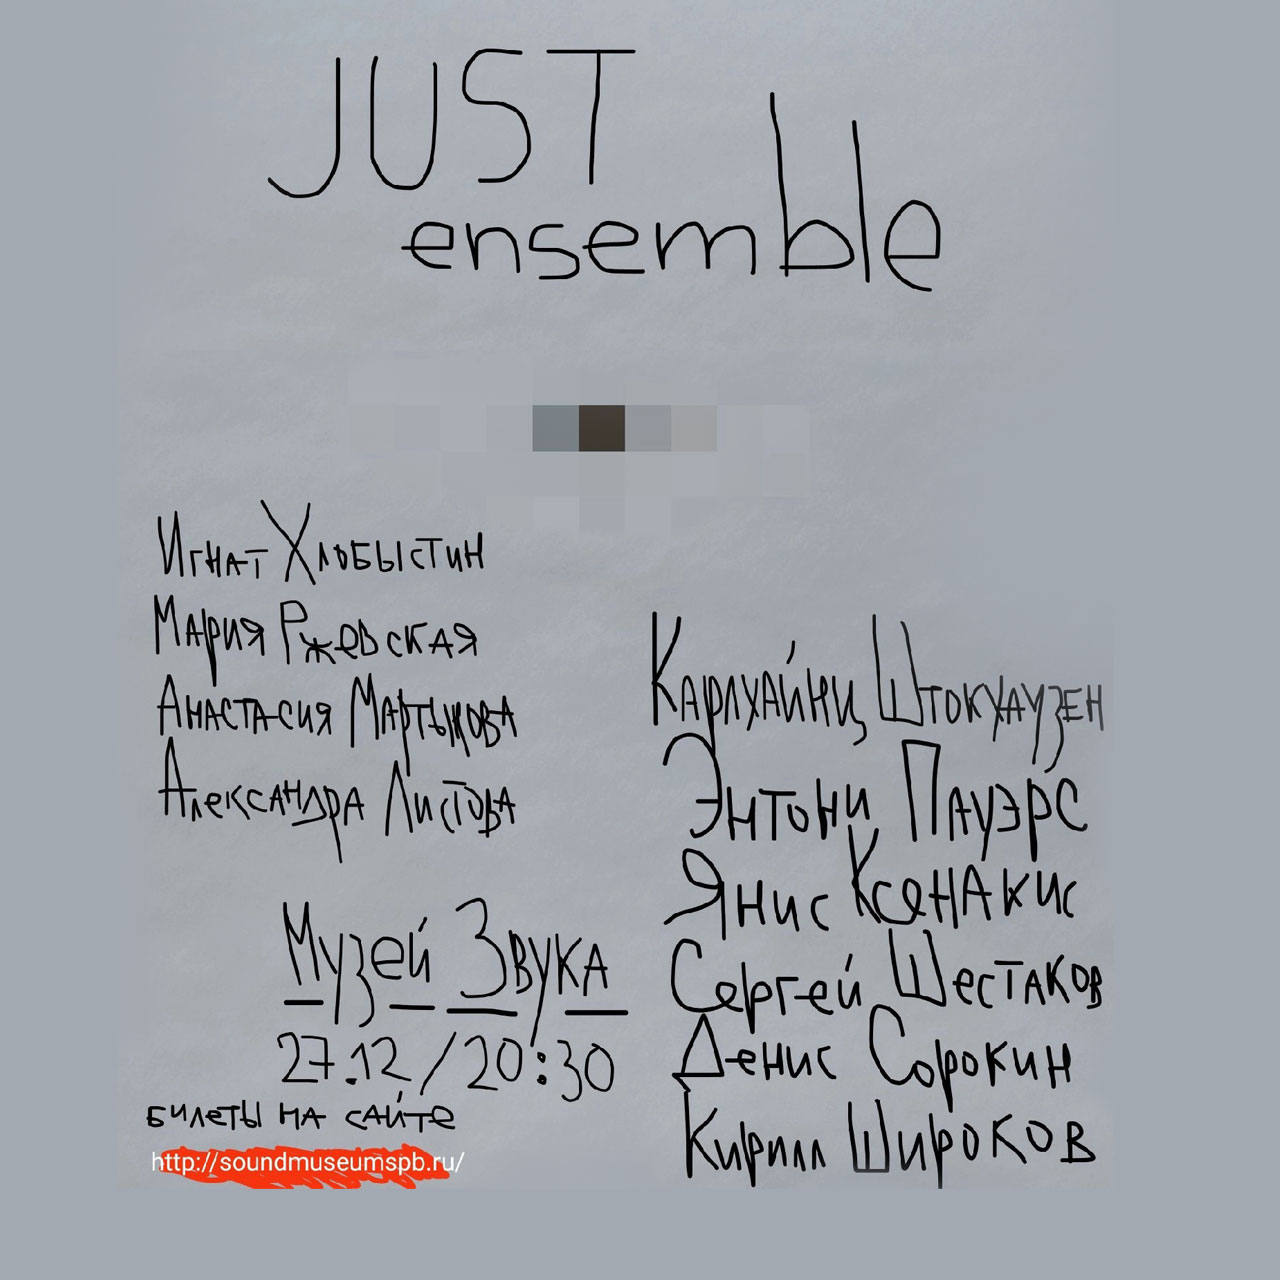 JUST
ensemble
Игнат Хлобыстин
Мария Ржевская
Анастасия Мартынова
Александра Листова
Карлхайнц Штокхаузен
Энтони Пауэрс
Янис Ксенакис
Сергей Шестаков
Денис Сорокин
Кирилл Широков
Музей Звука
27.12/20:30
билеты на сайте
http://soundmuseumspb.ru/